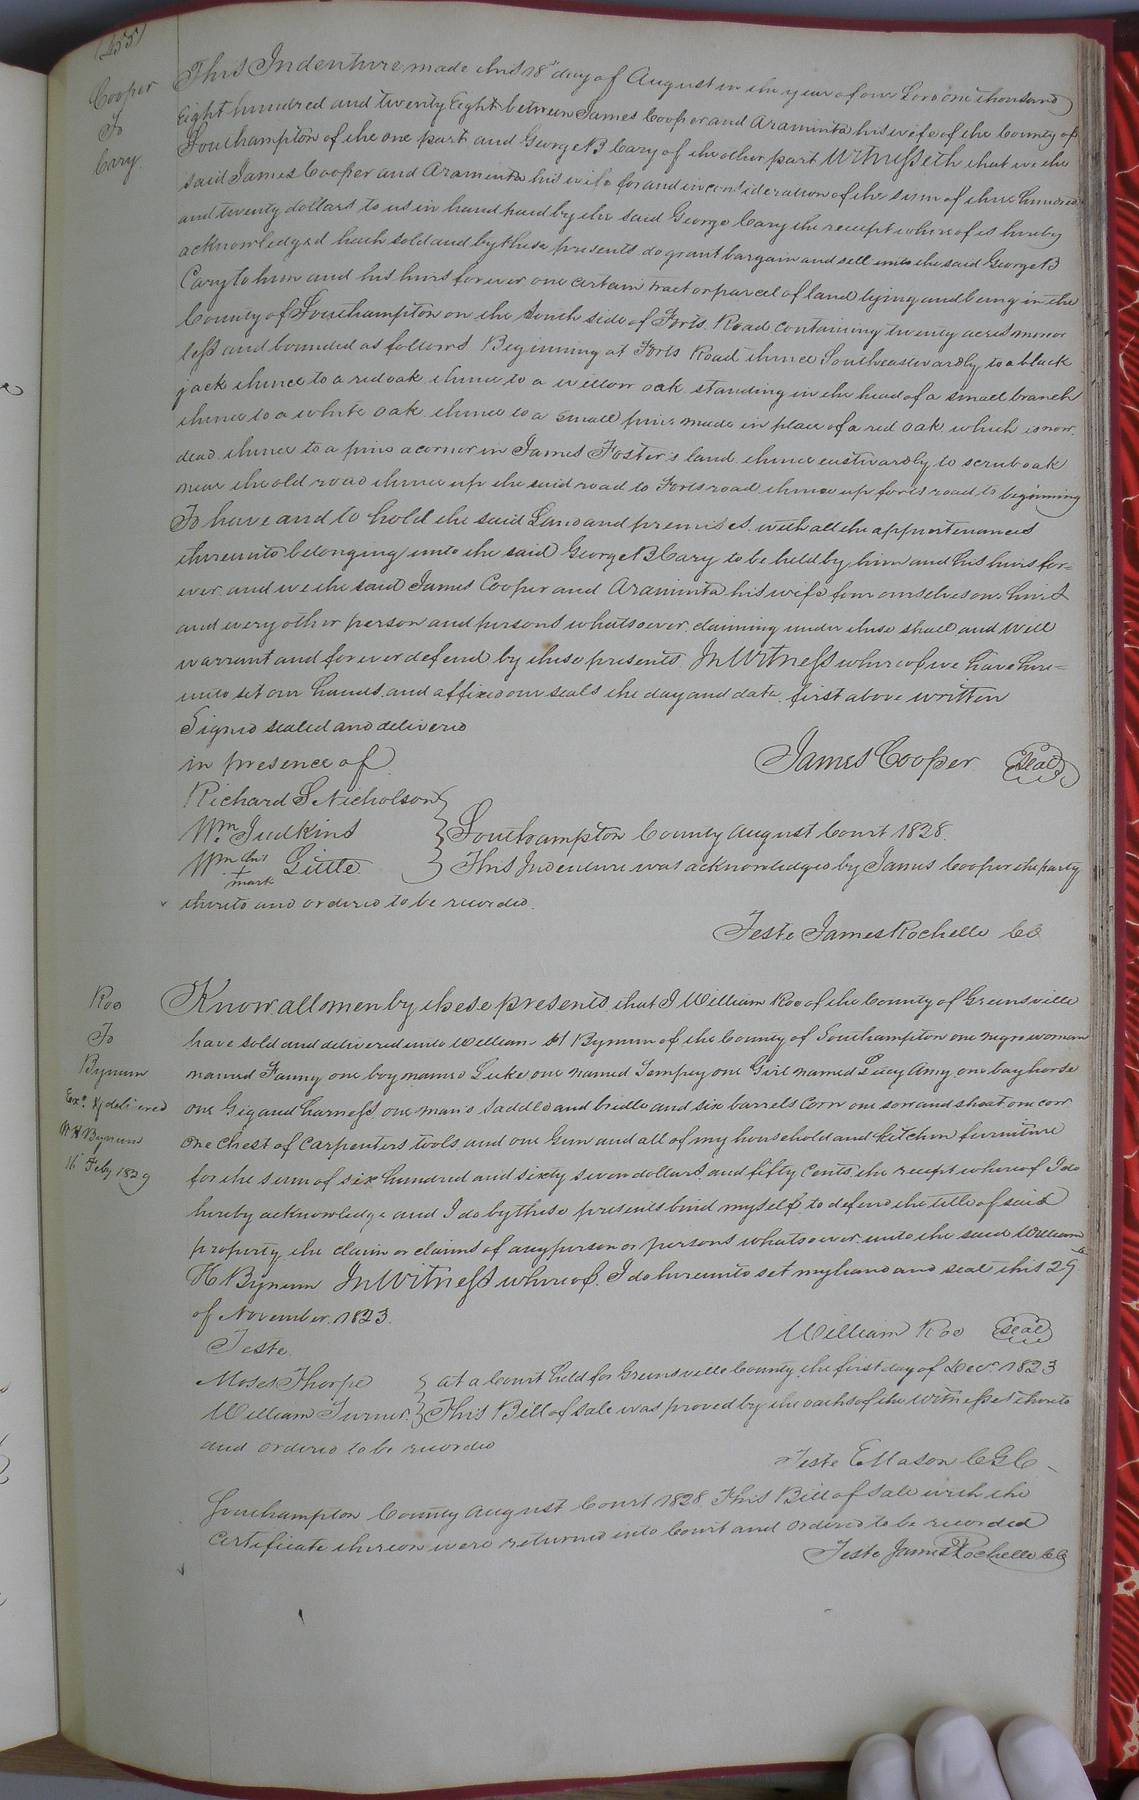 (455)
Cooper
To
Cary
This Indenture made this 18th day of August in the year of our Lord one thousand
Eight hundred and twenty Eight between James Cooper and Araminta his wife of the County of
Southampton of the one part and George B Cary of the other part Witnesseth that we the
said James Cooper and Araminta his wife for and in consideration of the sum of three hundred
and twenty dollars to us in hand paid by the said George Cary the receipt whereof is hereby
acknowledged hath sold and by these presents do grant bargain and sell unto the said George B
Cary to him and his heirs forever one certain tract or parcel of land lying and being in the
County of Southampton on the South side of Forts Road containing twenty acres more or
less and bounded as follows Beginning at Forts Road thence Southeastwardly to a black
jack thence to a red oak thence to a willow oak standing in the head of a small branch
thence to a white oak thence to a small pine made in place of a red oak which is now
dead thence to a pine a corner in James Foster's land thence eastwardly to scrub oak
near the old road thence up the said road to Forts road thence up forts road to beginning
To have and to hold the said Land and premises with all the appurtenances
thereunto belonging unto the said George B Cary to be held by him and his heirs for=
ever and we the said James Cooper and Araminta his wife from ourselves our heirs
and every other person and persons whatsoever claiming under these shall and will
warrant and forever defend by these presents In Witness whereof we have here=
unto set our hands and affixed our seals the day and date first above written
Signed sealed and delivered
in presence of
James Cooper Seal
Richard S Nicholson
Wm. Judkins
Southampton County August Court 1828.
Wm his + mark Little
This Indenture was acknowledged by James Cooper the party
thereto and ordered to be recorded.
Teste James Rochelle CC
Roe
To
Bynum
Exd. & delivered
W H Bynum
16 Feby 1829
Know all men by these presents that I William Roe of the County of Greensville
have sold and delivered unto William H Bynum of the County of Southampton one negro woman
named Fanny one boy named Luke one named Tempey one Girl named Lucy Amy one bay horse
one Gig and harness one man's saddle and bridle and six barrels corn one sow and shoat one cow
one chest of carpenters tools and one Gun and all of my household and kitchen furniture
for the sum of six hundred and sixty seven dollars and fifty Cents the receipt whereof I do
hereby acknowledge and I do by these presents bind myself to defend the title of said
property the claim or claims of any person or persons whatsoever unto the said William
H Bynum In Witness whereof I do hereunto set my hand and seal this 29th
of November 1823.
William Roe Seal
Teste
Moses Thorpe
at a Court held for Greensville County the first day of Decr. 1823
William Turner
This Bill of sale was proved by the oaths of the Witnesses thereto
and ordered to be recorded
Teste E Mason CGC
Southampton County August Court 1828. This Bill of Sale with the
Certificate thereon were returned into Court and ordered to be recorded
Teste James Rochelle CC